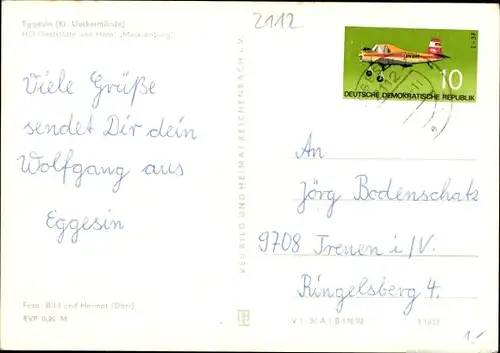 Eggesin (Kr. Ueckermünde)
HO-Gaststätte und Hotel „Mecklenburg"
2112
Viele Grüße
sendet Dir dein
Wolfgang aus
Eggesin
Foto: Bild und Heimat (Darr)
EVP 0,20 M
VEB BILD UND HEIMAT REICHENBACH i. V.
10
DEUTSCHE DEMOKRATISCHE REPUBLIK
An
Jörg Bodenschatz
9708 Treuen i/V.
Ringelsberg 4.
1/-